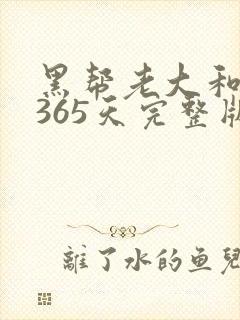 黑帮老大和
365天完整版
離了水的鱼兒